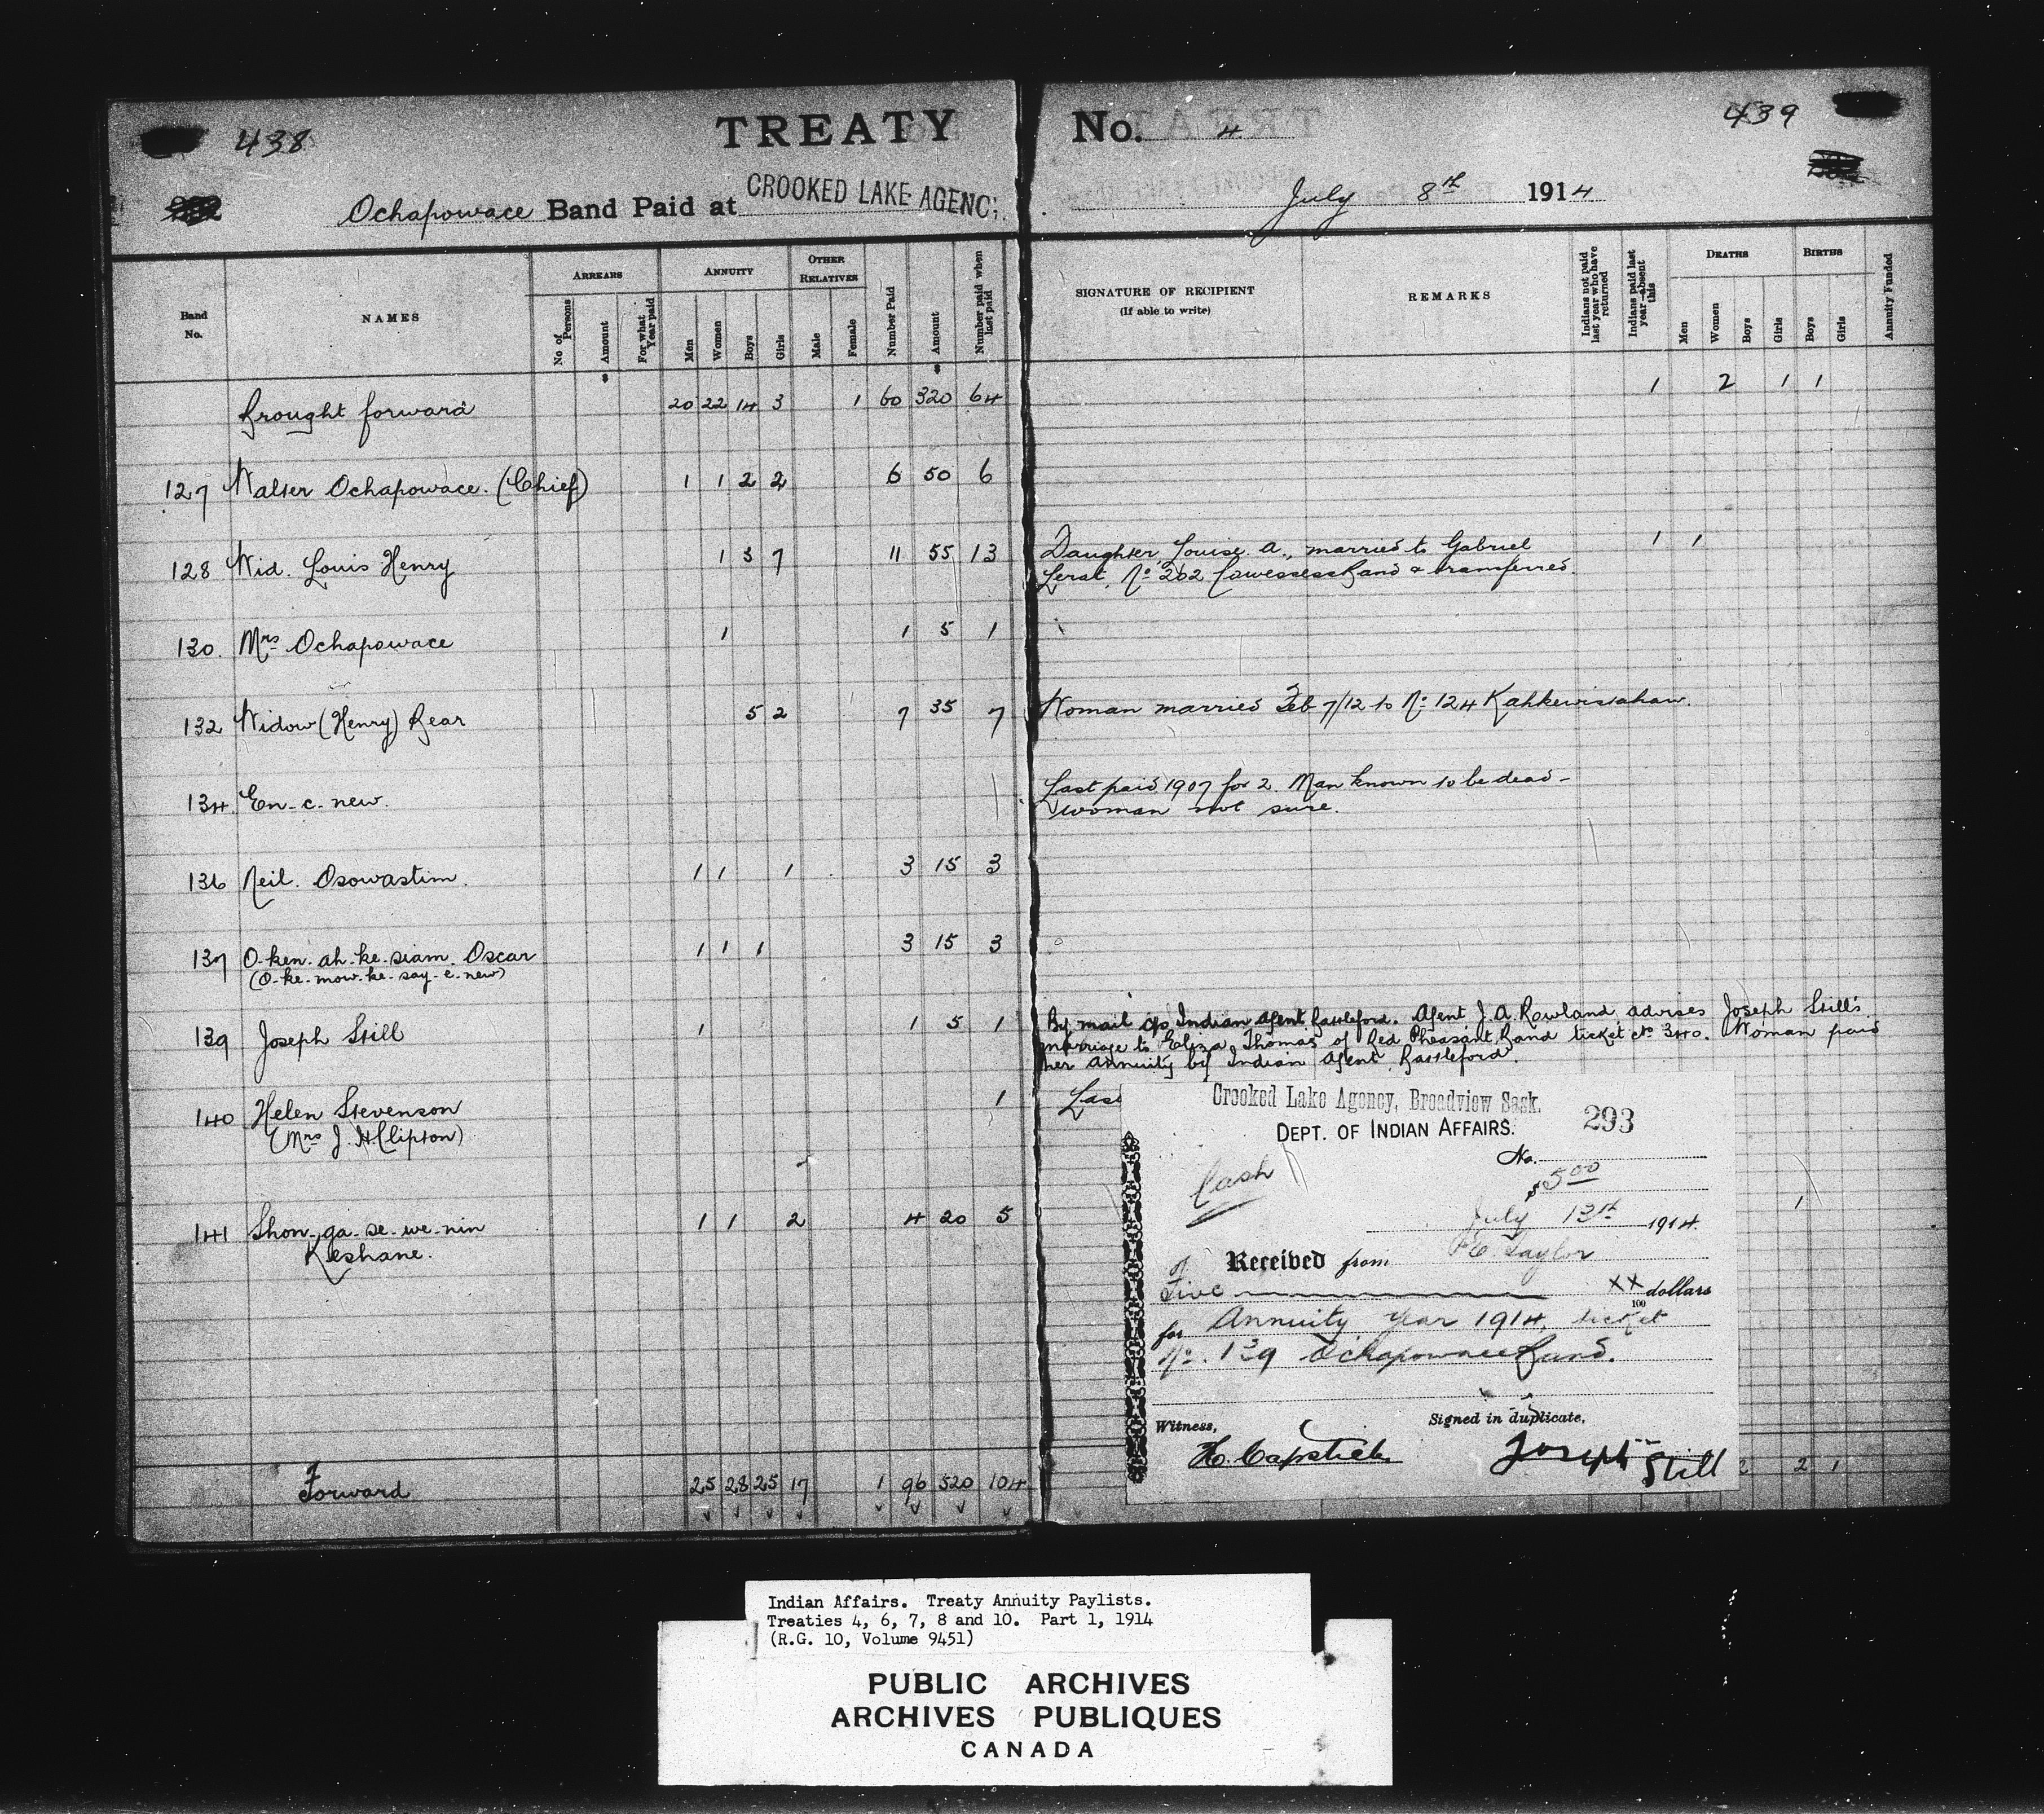 438
TREATY No. 4
439
Ochapowace Band Paid at CROOKED LAKE AGENCY. July 8th 1914
Band No.
NAMES
ARREARS
No of Persons
Amount
For what Year paid
ANNUITY
Men
Women
Boys
Girls
OTHER RELATIVES
Male
Female
Number Paid
Amount
Number paid when last paid
SIGNATURE OF RECIPIENT
(If able to write)
REMARKS
Indians not paid last year who have returned
Indians paid last year—absent this
DEATHS
Men
Women
Boys
Girls
BIRTHS
Boys
Girls
Annuity Funded
Brought forward 20 22 14 3 1 60 320 64 1 2 1 1
127 Walter Ochapowace. (Chief) 1 1 2 2 6 50 6
128 Wid. Louis Henry 1 3 7 11 55 13 Daughter, Louise. A., married to Gabriel 1 1
Lerat, No 202 Cowessess Band & transferred.
130. Mrs Ochapowace 1 1 5 1
132 Widow (Henry) Bear 5 2 7 35 7 Woman married Feb 7/12 to No 124 Kahkewistahaw.
134. En-c-new. Last paid 1907 for 2. Man known to be dead-
woman not sure.
136 Neil. Osowastim. 1 1 1 3 15 3
137 O-ken-ah-ke-siam. Oscar 1 1 1 3 15 3
(O-ke-mow-ke-say-e-new)
139 Joseph Still 1 1 5 1 By mail c/o Indian Agent Battleford. Agent J. A. Rowland advises Joseph Still's
marriage to Eliza Thomas of Red Pheasant Band ticket No 340. Woman paid
her annuity by Indian Agent, Battleford.
140 Helen Stevenson 1 Last
(Mrs J. H Clipton)
141 Shon-ga-se-we-nin 1 1 2 4 20 5 1
Keshane.
Forward 25 28 25 17 1 96 520 104 2 2 1
Crooked Lake Agency, Broadview Sask.
DEPT. OF INDIAN AFFAIRS. 293
No.
Cash
$5.00
July 13th 1914.
of Received from Taylor
Five xx/100 dollars
for Annuity year 1914, ticket
No. 139 Ochapowace Band.
Witness,
Signed in duplicate,
H. Capstick
Joseph Still
Indian Affairs. Treaty Annuity Paylists.
Treaties 4, 6, 7, 8 and 10. Part 1, 1914
(R.G. 10, Volume 9451)
PUBLIC ARCHIVES
ARCHIVES PUBLIQUES
CANADA